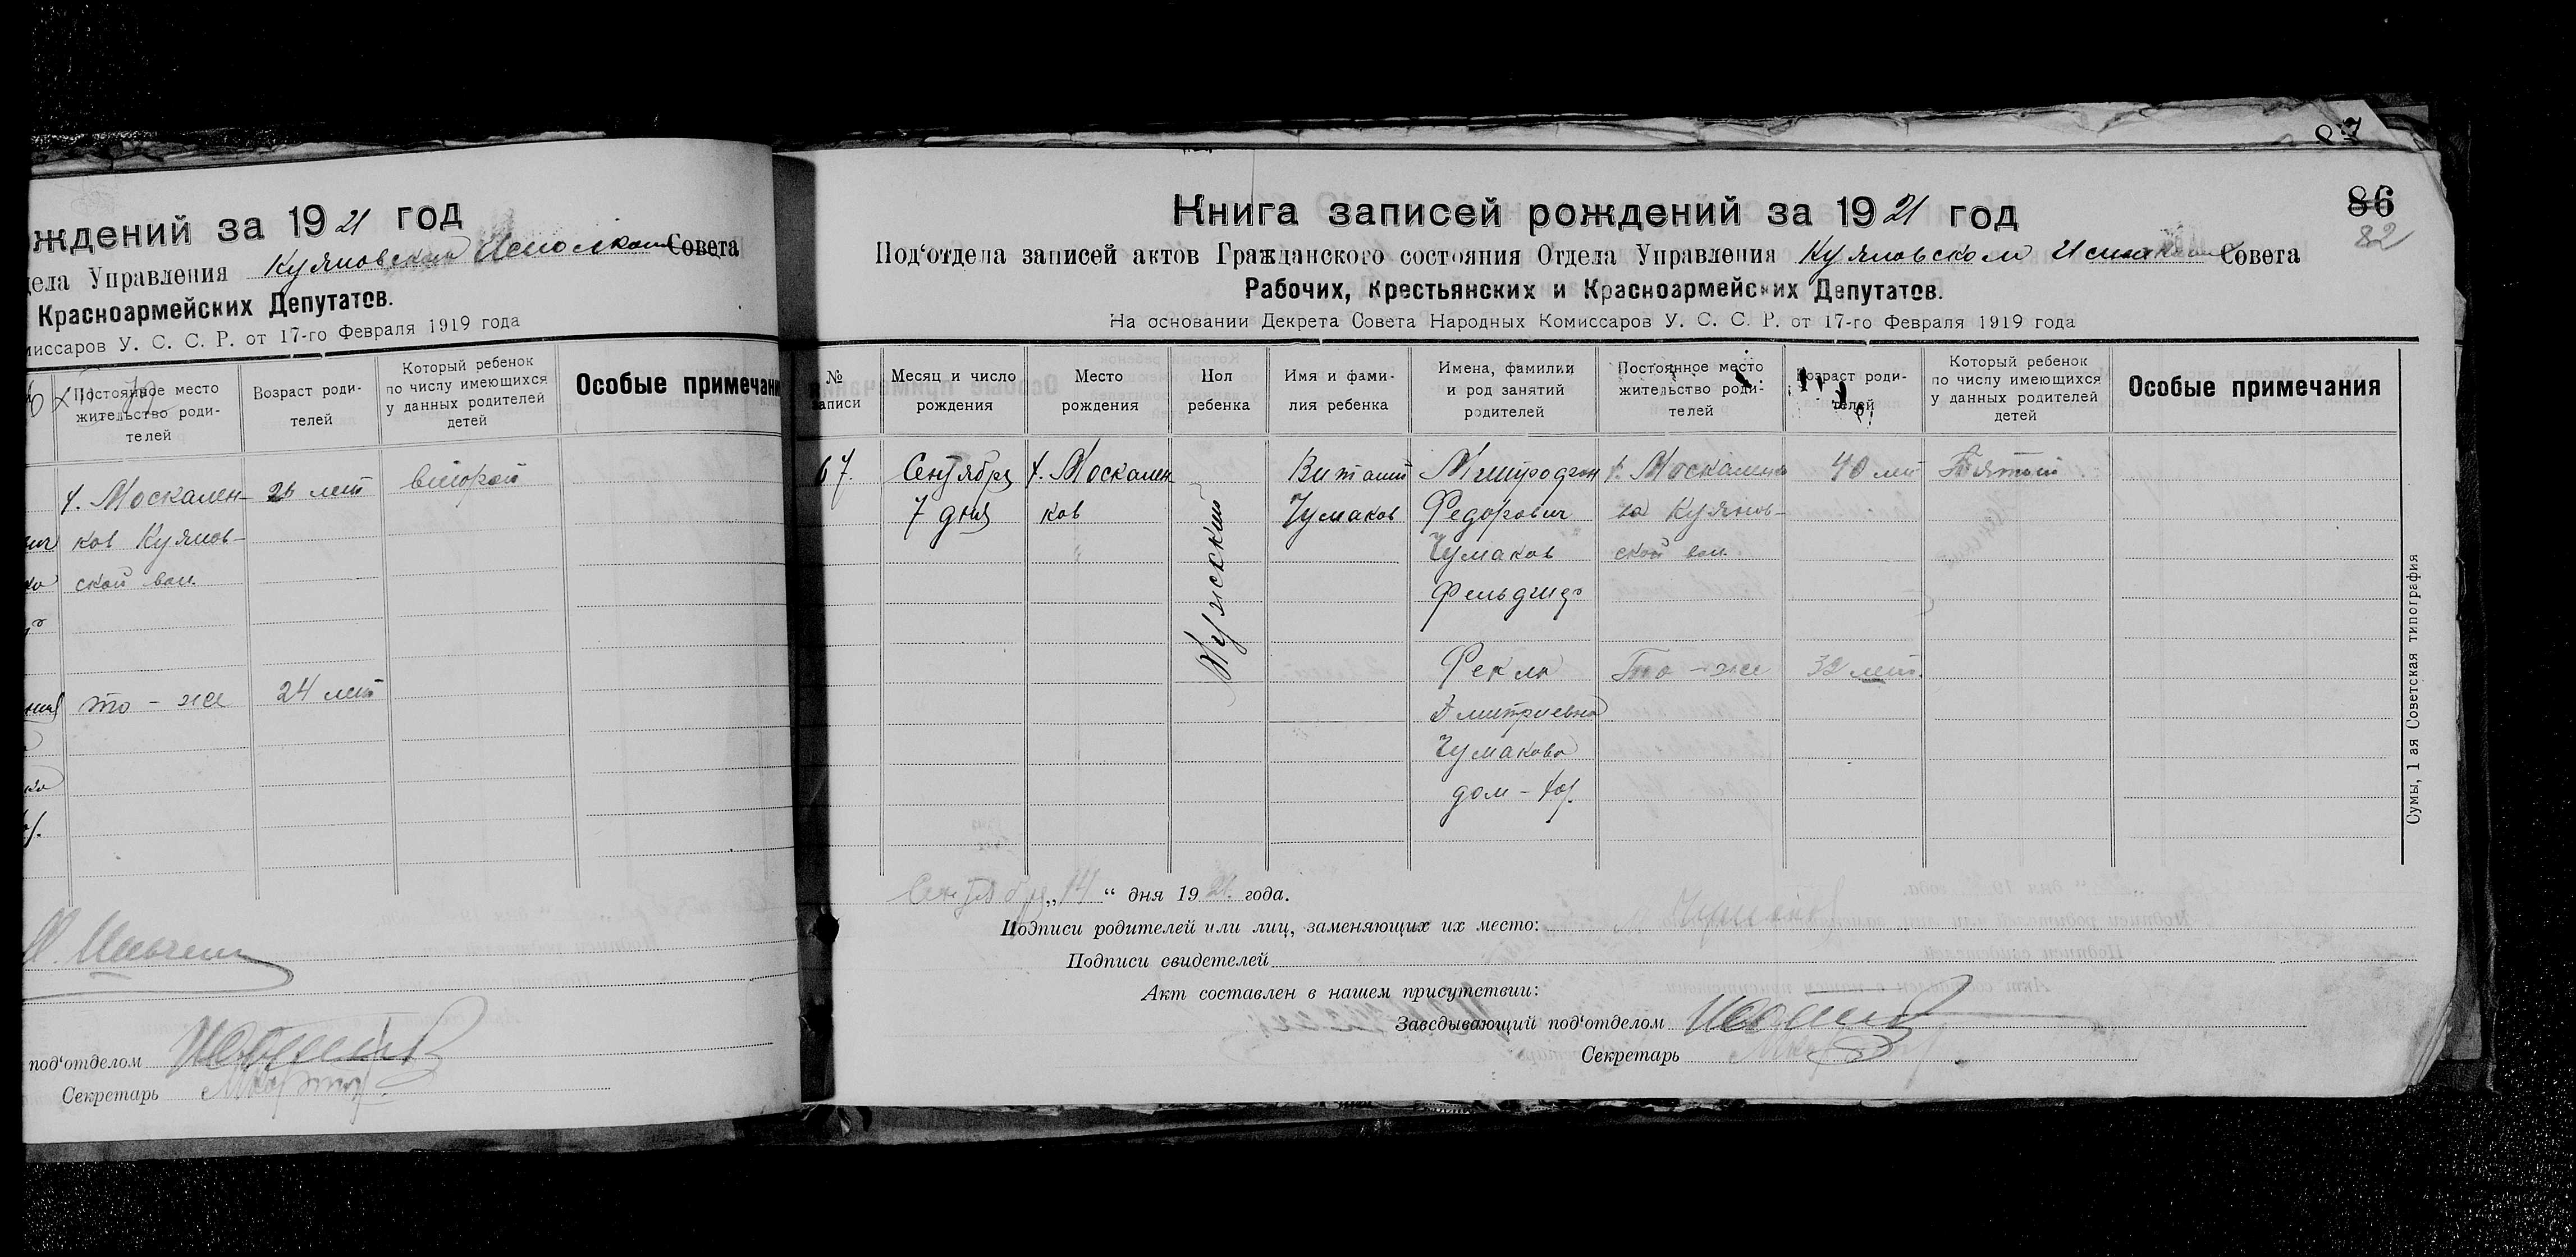 ждений за 1921 год
дела Управления Куяновский Исполком Совета
Красноармейских Депутатов.
миссаров У. С. С. Р. от 17-го Февраля 1919 года
Постоянное место
жительство роди-
телей
Возраст роди-
телей
Который ребенок
по числу имеющихся
у данных родителей
детей
Особые примечани
х. Москален-
ков Куянов-
ской вол.
26 лет
второй
то - же
24 лет
под'отделом
Секретарь
87
86
82
Книга записей рождений за 1921 год
Под'отдела записей актов Гражданского состояния Отдела Управления Куяновском Исполком Совета
Рабочих, Крестьянских и Красноармейских Депутатов.
На основании Декрета Совета Народных Комиссаров У. С. С. Р. от 17-го Февраля 1919 года
№
записи
Месяц и число
рождения
Место
рождения
Пол
ребенка
Имя и фами-
лия ребенка
Имена, фамилии
и род занятий
родителей
Постоянное место
жительство роди-
телей
Возраст роди-
телей
Который ребенок
по числу имеющихся
у данных родителей
детей
Особые примечания
67.
Сентября
7 дня
х. Москален
ков
Мужский
Виталий
Чумаков
Митродон
Федорович
Чумаков
Фельдшер
х. Москаленко
ва Куянов-
ской вол.
40 лет
Пятый
Фекла
Дмитриевна
Чумакова
дом - хоз.
То - же
32 лет.
Сентября „14“ дня 1921. года.
Подписи родителей или лиц, заменяющих их место: М Чумаков
Подписи свидетелей
Акт составлен в нашем присутствии:
Заведывающий под'отделом
Секретарь
Сумы, 1 ая Советская типография